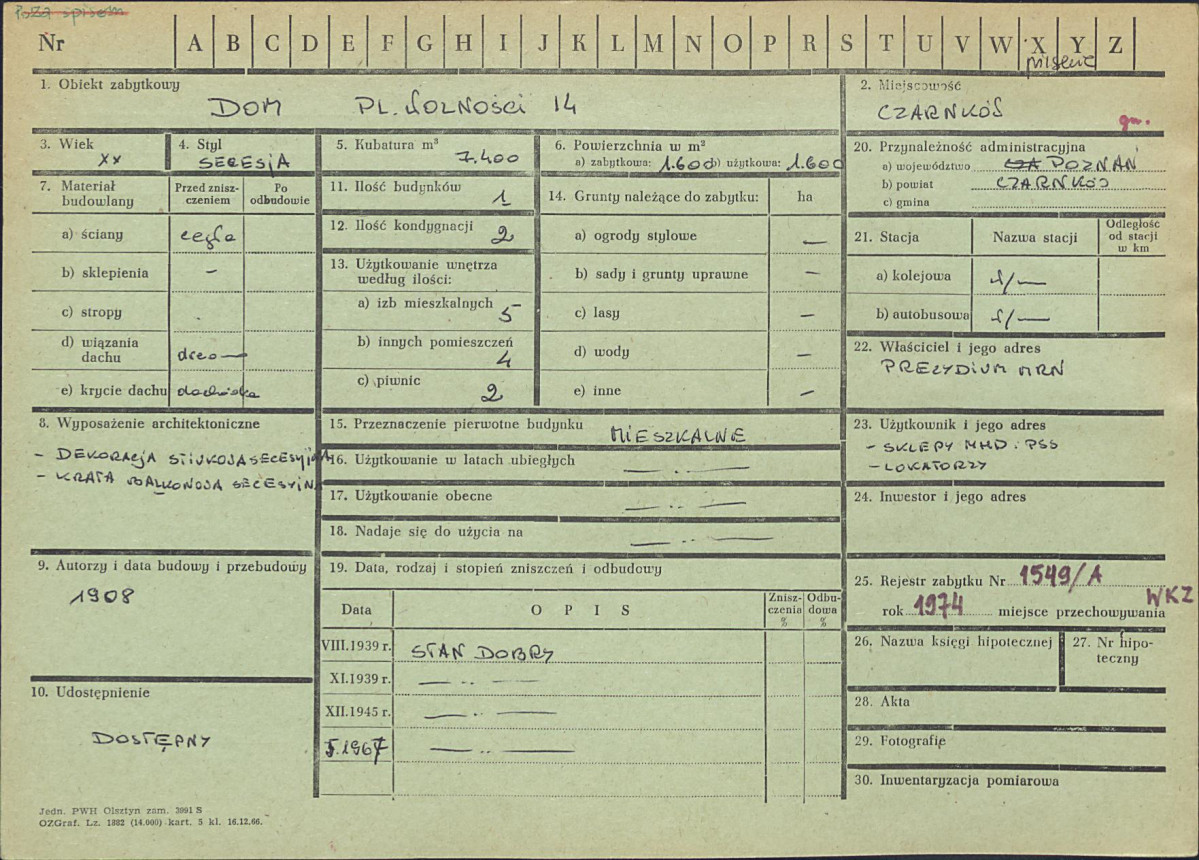 Poza spisem
Nr A B C D E F G H I J K L M N O P R S T U V W X Y Z
1. Obiekt zabytkowy
DOM PL. WOLNOŚCI 14
2. Miejscowość
CZARNKÓW
gm.
3. Wiek
XX
4. Styl
SECESJA
5. Kubatura m³
7.400
6. Powierzchnia w m²
a) zabytkowa: 1.600 b) użytkowa: 1.600
20. Przynależność administracyjna
a) województwo POZNAŃ
b) powiat CZARNKÓW
c) gmina
7. Materiał budowlany
Przed zniszczeniem
Po odbudowie
a) ściany cegła
b) sklepienia –
c) stropy
d) wiązania dachu drewn
e) krycie dachu dachówka
11. Ilość budynków
1
12. Ilość kondygnacji
2
13. Użytkowanie wnętrza według ilości:
a) izb mieszkalnych 5
b) innych pomieszczeń
4
c) piwnic
2
14. Grunty należące do zabytku: ha
a) ogrody stylowe —
b) sady i grunty uprawne —
c) lasy —
d) wody —
e) inne —
21. Stacja Nazwa stacji Odległość od stacji w km
a) kolejowa
b) autobusowa
22. Właściciel i jego adres
PREZYDIUM MRN
8. Wyposażenie architektoniczne
- DEKORACJA STIUKOWA SECESYJNA
- KRATA BALKONOWA SECESYJNA
15. Przeznaczenie pierwotne budynku
MIESZKALNE
16. Użytkowanie w latach ubiegłych
— .. —
17. Użytkowanie obecne
— .. —
18. Nadaje się do użycia na
— .. —
23. Użytkownik i jego adres
- SKLEPY MHD. PSS
- LOKATORZY
24. Inwestor i jego adres
9. Autorzy i data budowy i przebudowy
1908
19. Data, rodzaj i stopień zniszczeń i odbudowy
Data OPIS Zniszczenia % Odbudowa %
VIII.1939 r. STAN DOBRY
XI.1939 r. — .. —
XII.1945 r. — .. —
I.1967 — .. —
25. Rejestr zabytku Nr 1549/A
rok 1974 miejsce przechowywania WKZ
26. Nazwa księgi hipotecznej
27. Nr hipoteczny
28. Akta
29. Fotografie
30. Inwentaryzacja pomiarowa
10. Udostępnienie
DOSTĘPNY
Jedn. PWH Olsztyn zam. 3991 S
OZGraf. Lz. 1882 (14.000) kart. 5 kl. 16.12.66.